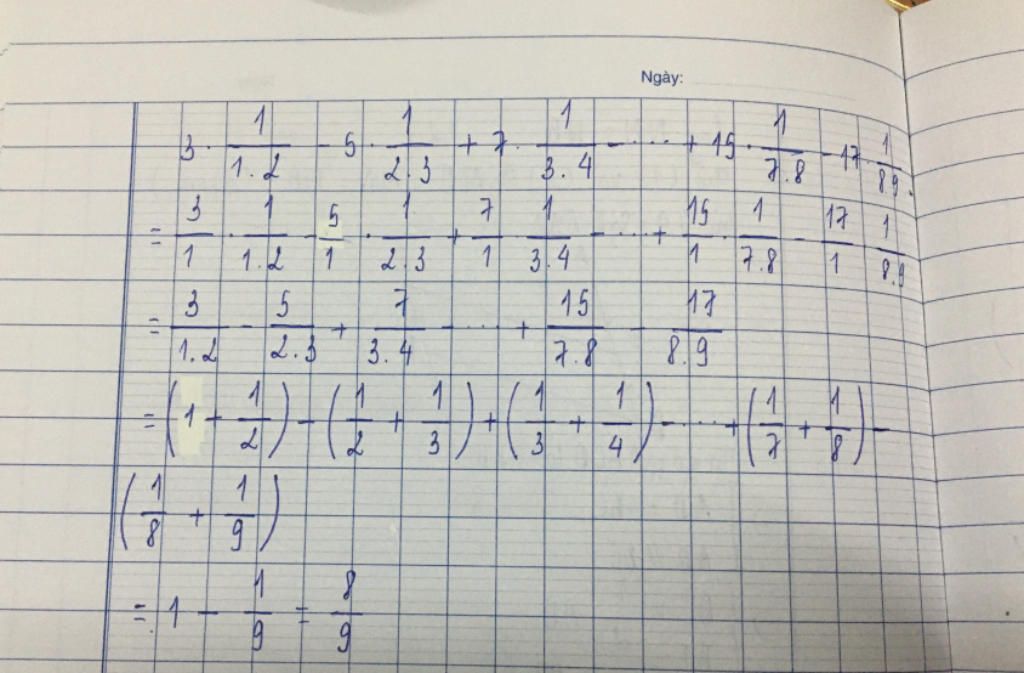 Ngày:
3 · 1/(1.2) - 5 · 1/(2.3) + 7 · 1/(3.4) - ... + 15 · 1/(7.8) - 17 · 1/(8.9).
= 3/1 · 1/(1.2) - 5/1 · 1/(2.3) + 7/1 · 1/(3.4) - ... + 15/1 · 1/(7.8) - 17/1 · 1/(8.9)
= 3/(1.2) - 5/(2.3) + 7/(3.4) - ... + 15/(7.8) - 17/(8.9)
= (1 + 1/2) - (1/2 + 1/3) + (1/3 + 1/4) - ... + (1/7 + 1/8) -
(1/8 + 1/9)
= 1 - 1/9 = 8/9